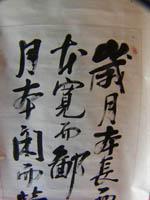 歲月本長而
本寬而鄙
月本閑而